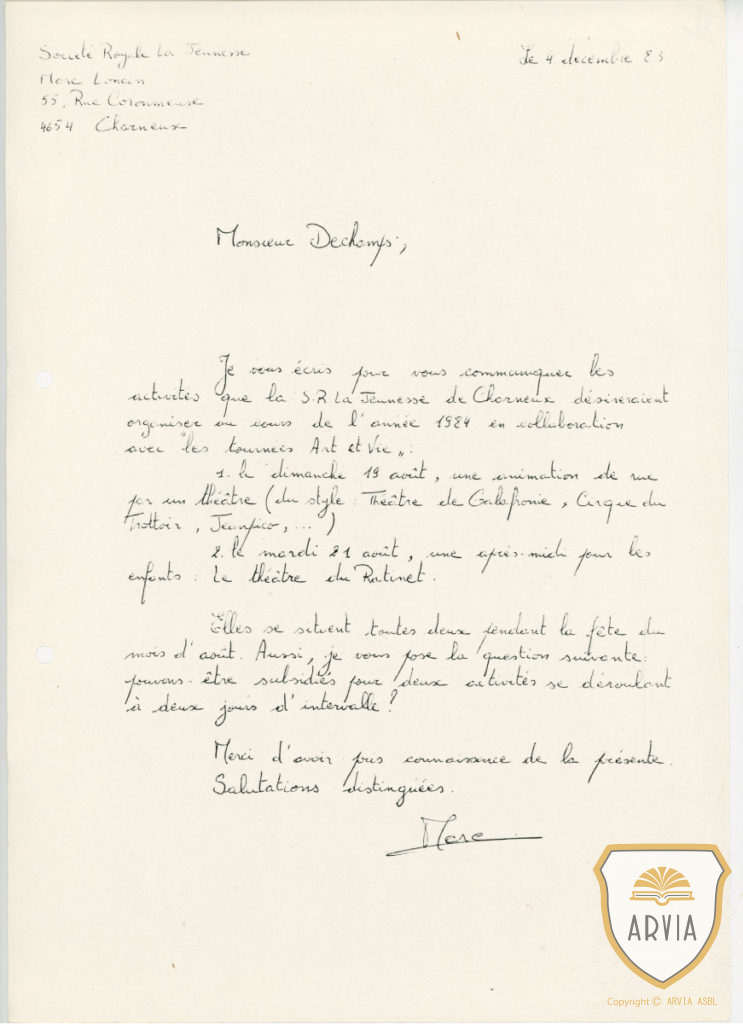 Société Royale La Jeunesse
Le 4 décembre 83
Marc Loncin
55, Rue Coronmeuse
4654 Charneux
Monsieur Dechamps,
Je vous écris pour vous communiquer les
activités que la S.R La Jeunesse de Charneux désireraient
organiser au cours de l'année 1984 en collaboration
avec "les tournées Art et Vie" :
1. le dimanche 19 août, une animation de rue
par un théâtre (du style : Théâtre de Galafronie, Cirque du
Trottoir, Jeanpico, ... )
2. le mardi 21 août, une après-midi pour les
enfants : Le théâtre du Ratinet.
Elles se situent toutes deux pendant la fête du
mois d'août. Aussi, je vous pose la question suivante :
pouvons-être subsidiés pour deux activités se déroulant
à deux jours d'intervalle ?
Merci d'avoir pris connaissance de la présente.
Salutations distinguées.
Marc
ARVIA
Copyright © ARVIA ASBL